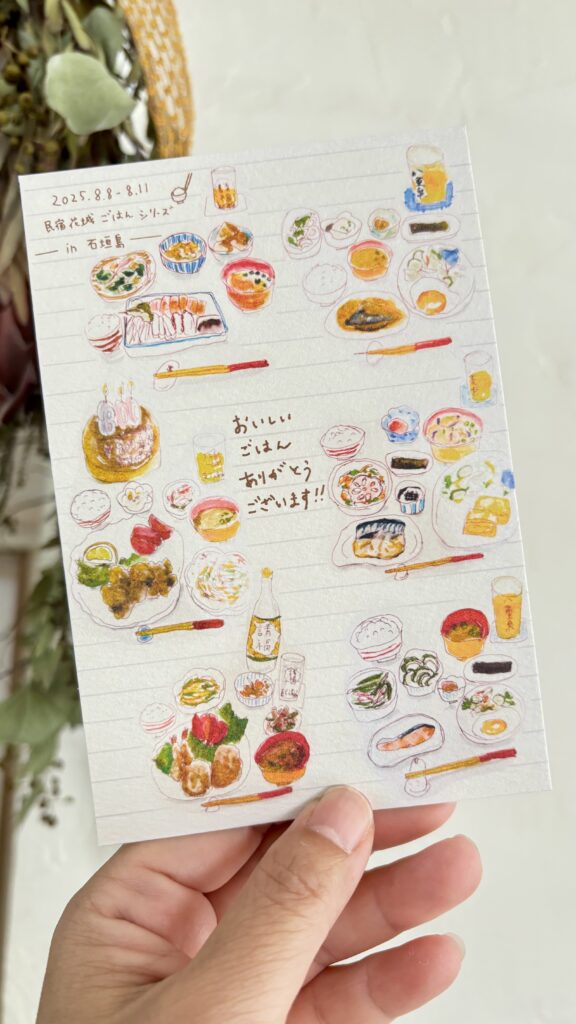 2025.8.8-8.11
民宿花城 ごはん シリーズ
in 石垣島
おいしい
ごはん
ありがとう
ございます!!